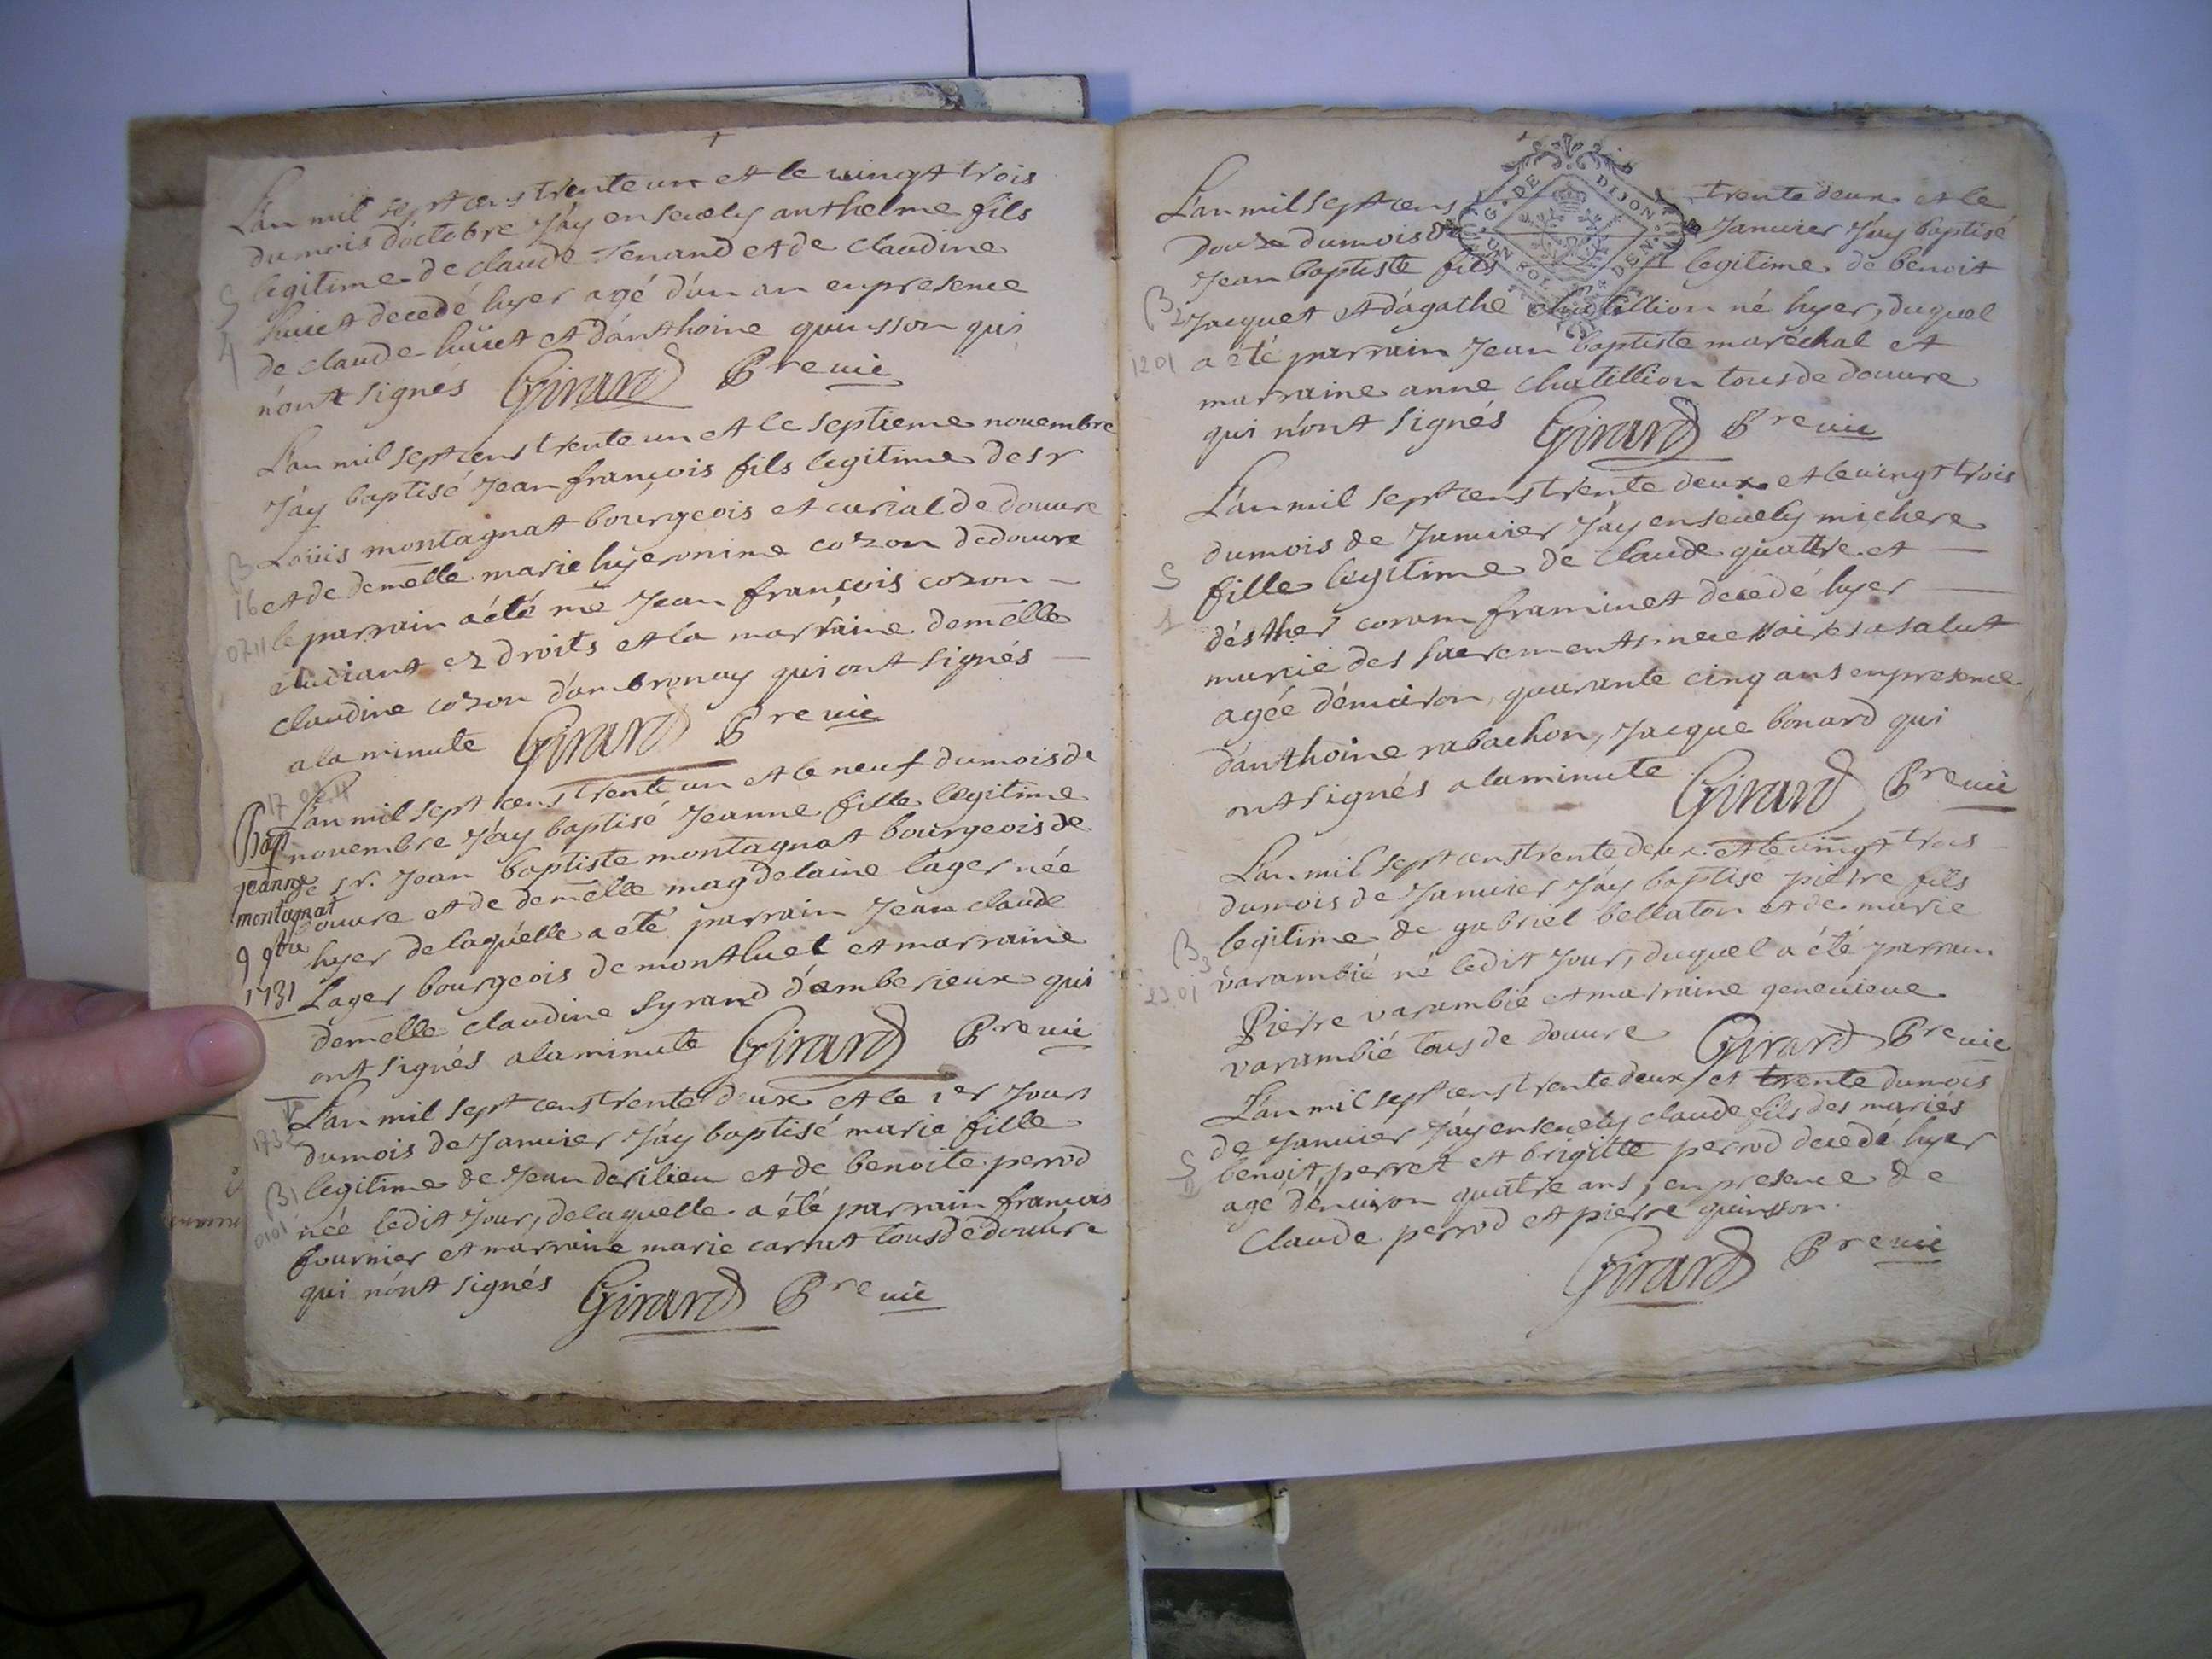 L'an mil sept cens trente un et le vingt trois
du mois d'octobre J'ay ensevely anthelme fils
legitime de claude Jenand et de Claudine
huict decedé hyer agé d'un an en presence
de claude huict et d'anthoine guinsson qui
n'ont signés Girard Pre vic
L'an mil sept cens trente un et le septieme novembre
J'ay baptisé Jean françois fils legitime de sr
Loüis montagnat bourgeois et curial de douvre
et de demelle marie hyeronime cozon de douvre
le parrain a été me Jean françois cozon
étudiant ez droits et la marraine demelle
Claudine cozon d'ambronay qui ont signés
a la minute Girard Pre vic
L'an mil sept cens trente un et le neuf du mois de
novembre J'ay baptisé Jeanne fille legitime
de sr. Jean baptiste montagnat bourgeois de
douvre et de demelle magdelaine lager née
hyer de laquelle a eté parrain Jean claude
Lager bourgeois de montluel et marraine
demelle Claudine Syrand d'amberieux qui
ont signés a la minute Girard Pre vic
Bap
jeanne
montagnat
9 9bre
1731
L'an mil sept cens trente deux et le 1er Jour
du mois de Janvier J'ay baptisé marie fille
legitime de Jean derilieu et de benoite perrod
née ledit Jour, de laquelle a été parrain francois
fournier et marraine marie carrut tous de douvre
qui n'ont signés Girard Pre vic
B
16
0711
17
1732
B1
0101
L'an mil sept cens trente deux et le
G. DE DIJON
UN SOL DEN
douze du mois de Janvier J'ay baptisé
Jean baptiste fils legitime de benoit
Jacquet et d'agathe chatillion né hyer, duquel
a été parrain Jean baptiste maréchal et
marraine anne Chatillion tous de douvre
qui n'ont signés Girard Pre vic
B2
1201
L'an mil sept cens trente deux et le vingt trois
du mois de Janvier J'ay ensevely michere
fille legitime de Claude quattre et
d'esther coram framinet decedé hyer
munie des sacrements necessaires a salut
agée d'environ quarante cinq ans en presence
d'anthoine rabachon, Jacque bonard qui
ont signés a la minute Girard Pre vic
S
1
L'an mil sept cens trente deux et le vingt trois
du mois de Janvier J'ay baptisé pierre fils
legitime de gabriel bellaton et de marie
varambié né ledit Jour, duquel a été parrain
Pierre varambié et marraine genevieve
varambié tous de douvre Girard Pre vic
B3
2301
L'an mil sept cens trente deux et trente du mois
de Janvier J'ay ensevely claude fils des mariés
benoit perret et brigitte perrod decedé hyer
agé d'environ quattre ans, en presence de
Claude perrod et pierre guinsson.
Girard Pre vic